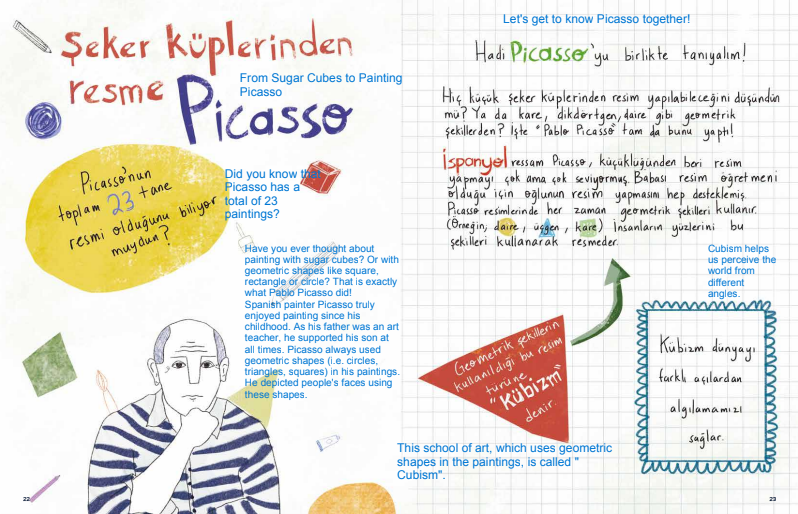 Şeker küplerinden
resme Picasso
From Sugar Cubes to Painting
Picasso
Picasso'nun
toplam 23 tane
resmi olduğunu biliyor
muydun?
Did you know that
Picasso has a
total of 23
paintings?
Have you ever thought about
painting with sugar cubes? Or with
geometric shapes like square,
rectangle or circle? That is exactly
what Pablo Picasso did!
Spanish painter Picasso truly
enjoyed painting since his
childhood. As his father was an art
teacher, he supported his son at
all times. Picasso always used
geometric shapes (i.e. circles,
triangles, squares) in his paintings.
He depicted people's faces using
these shapes.
22
Let's get to know Picasso together!
Hadi Picasso'yu birlikte tanıyalım!
Hiç küçük şeker küplerinden resim yapılabileceğini düşündün
mü? Ya da kare, dikdörtgen, daire gibi geometrik
şekillerden? İşte "Pablo Picasso" tam da bunu yaptı!
İspanyol ressam Picasso, küçüklüğünden beri resim
yapmayı çok ama çok seviyormuş. Babası resim öğretmeni
olduğu için oğlunun resim yapmasını hep desteklemiş.
Picasso resimlerinde her zaman geometrik şekilleri kullanır.
(Örneğin; daire, üçgen, kare) İnsanların yüzlerini bu
şekilleri kullanarak resmeder.
Cubism helps
us perceive the
world from
different
angles.
Geometrik şekillerin
kullanıldığı bu resim
türüne
"Kübizm"
denir.
Kübizm dünyayı
farklı açılardan
algılamamızı
sağlar.
This school of art, which uses geometric
shapes in the paintings, is called "
Cubism".
23